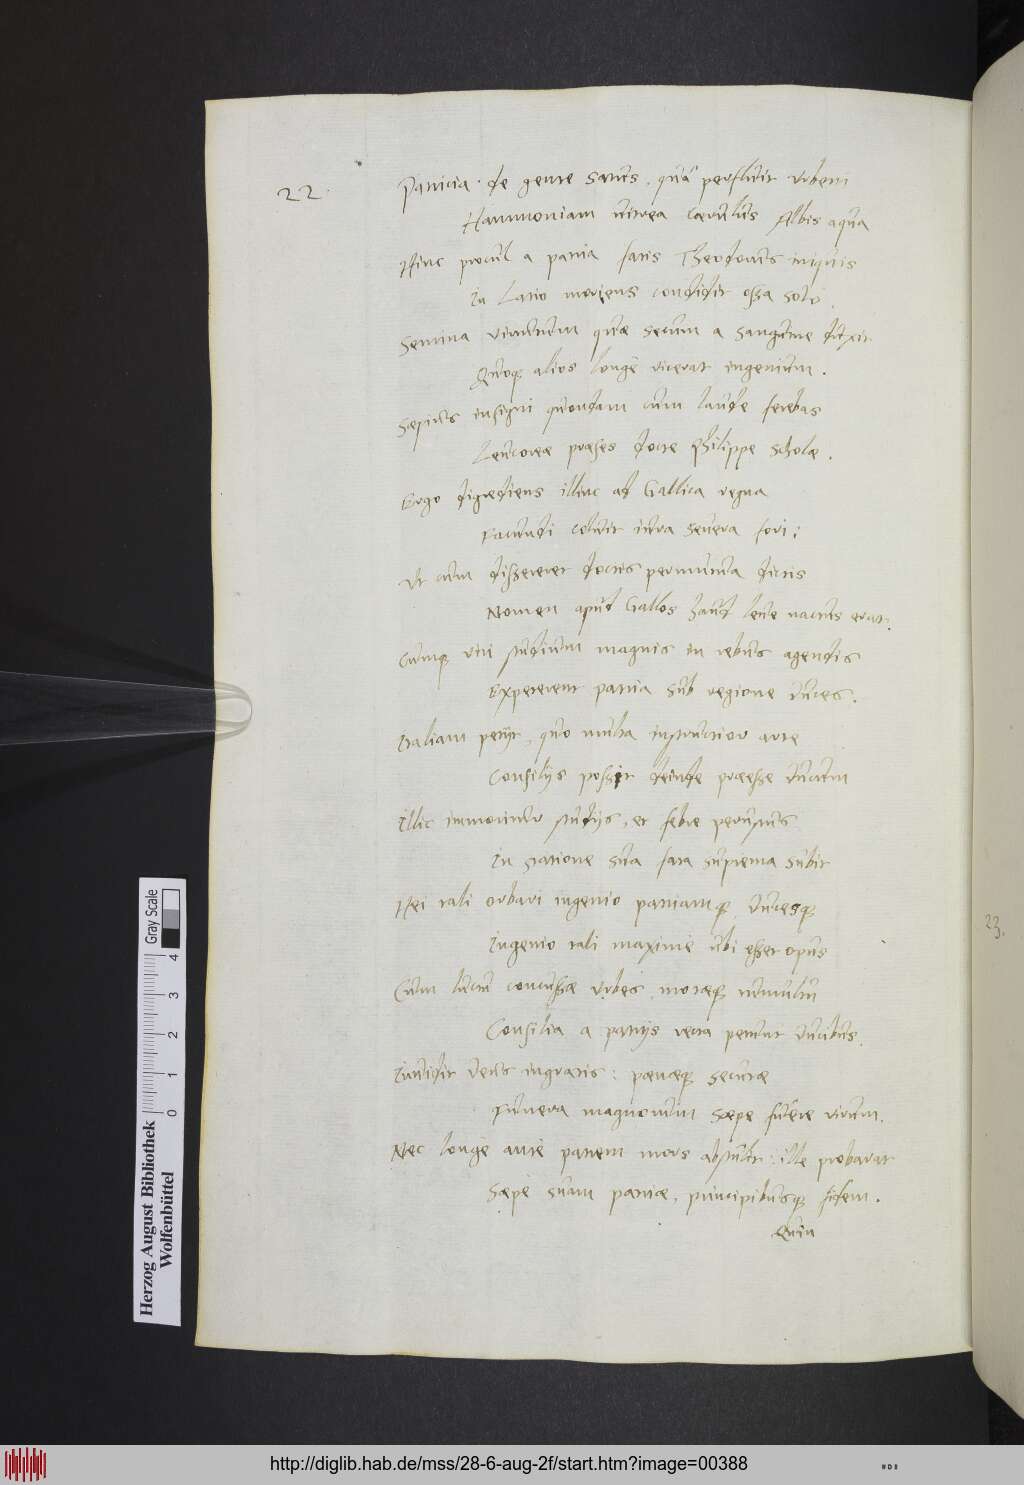 22.
Patricia de gente satus, quà perfluit urbem
Hammoniam vitrea caerulus Albis aqua
Hinc procul a patria fatis Theodorus iniquis
In Latio moriens condidit ossa solo.
Semina virtutum quae secum a sanguine duxit
Quoque alios longè vicerat ingenium.
Saepius insigni quondam cum laude ferebas
Leucoreae praeses docte Philippe scholae.
Ergo digrediens illinc ad Gallica regna
Facundi coluit iura severa fori:
Ut cum dissereret doctis permulta dictis
Nomen apud Gallos haud leve nactus erat.
Cumq; viri studium magnis in rebus agendis
Expeterent patria sub regione duces.
Italiam petijt, quo multa instructior arte
Consilijs possit deinde praeesse ducum
Illic immoritur studijs, et febre perustus
In statione sua fata suprema subit
Hei tali orbari ingenio patriamq; ducesq;
Ingenio tali maximè ubi esset opus
Cum luctu concussae urbes, motaeq; tumultu
Consilia a patrijs recta petunt ducibus.
Invidit deus ingratis: poenaeq; securae
Funera magnorum saepe fuere virum.
Nec longè antè patrem mors abstulit: ille probarat
Saepe suam patriae, principibusq; fidem.
Quin
23.
Herzog August Bibliothek
Wolfenbüttel
Gray Scale
0 1 2 3 4
http://diglib.hab.de/mss/28-6-aug-2f/start.htm?image=00388